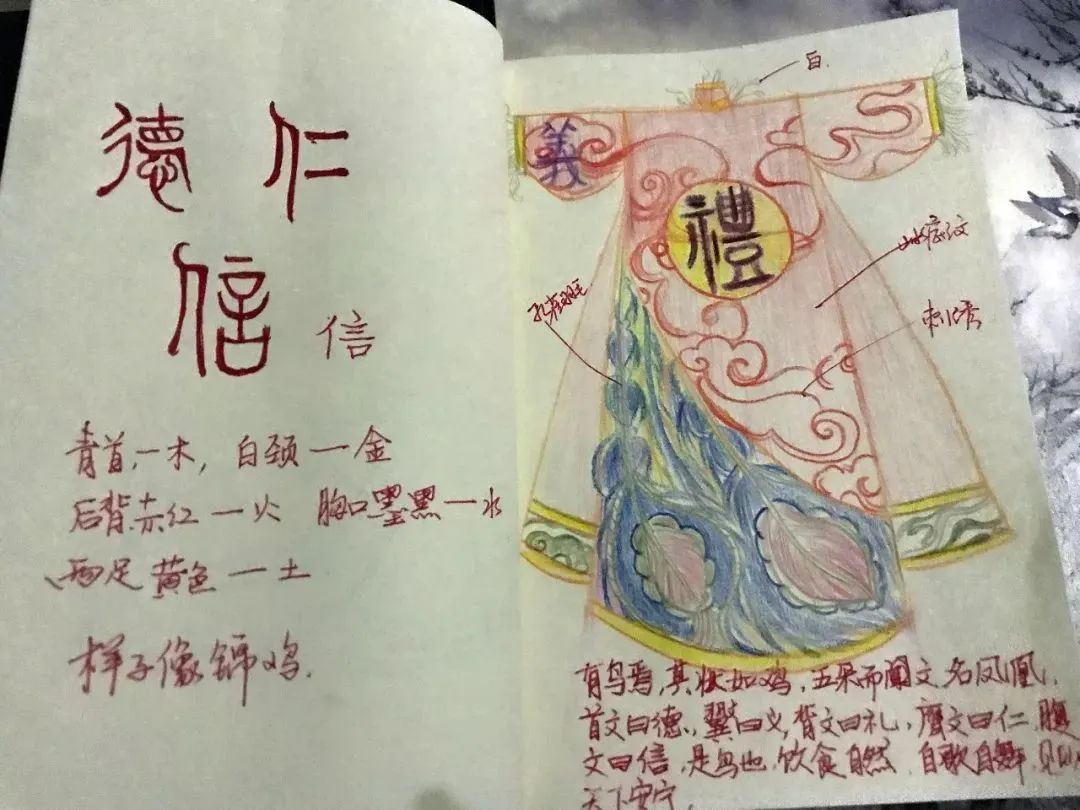 德 仁
信 信
青首一木，白颈一金
后背赤红一火 胸口墨黑一水
两足黄色一土
样子像锦鸡.
白.
義
禮
孔雀羽毛
刺绣
有鸟焉，其状如鸡，五采而闻文，名凤凰，
首文曰德，翼曰义，背文曰礼，膺文曰仁 腹
文曰信，是鸟也，饮食自然，自歌自舞，见
天下安宁.